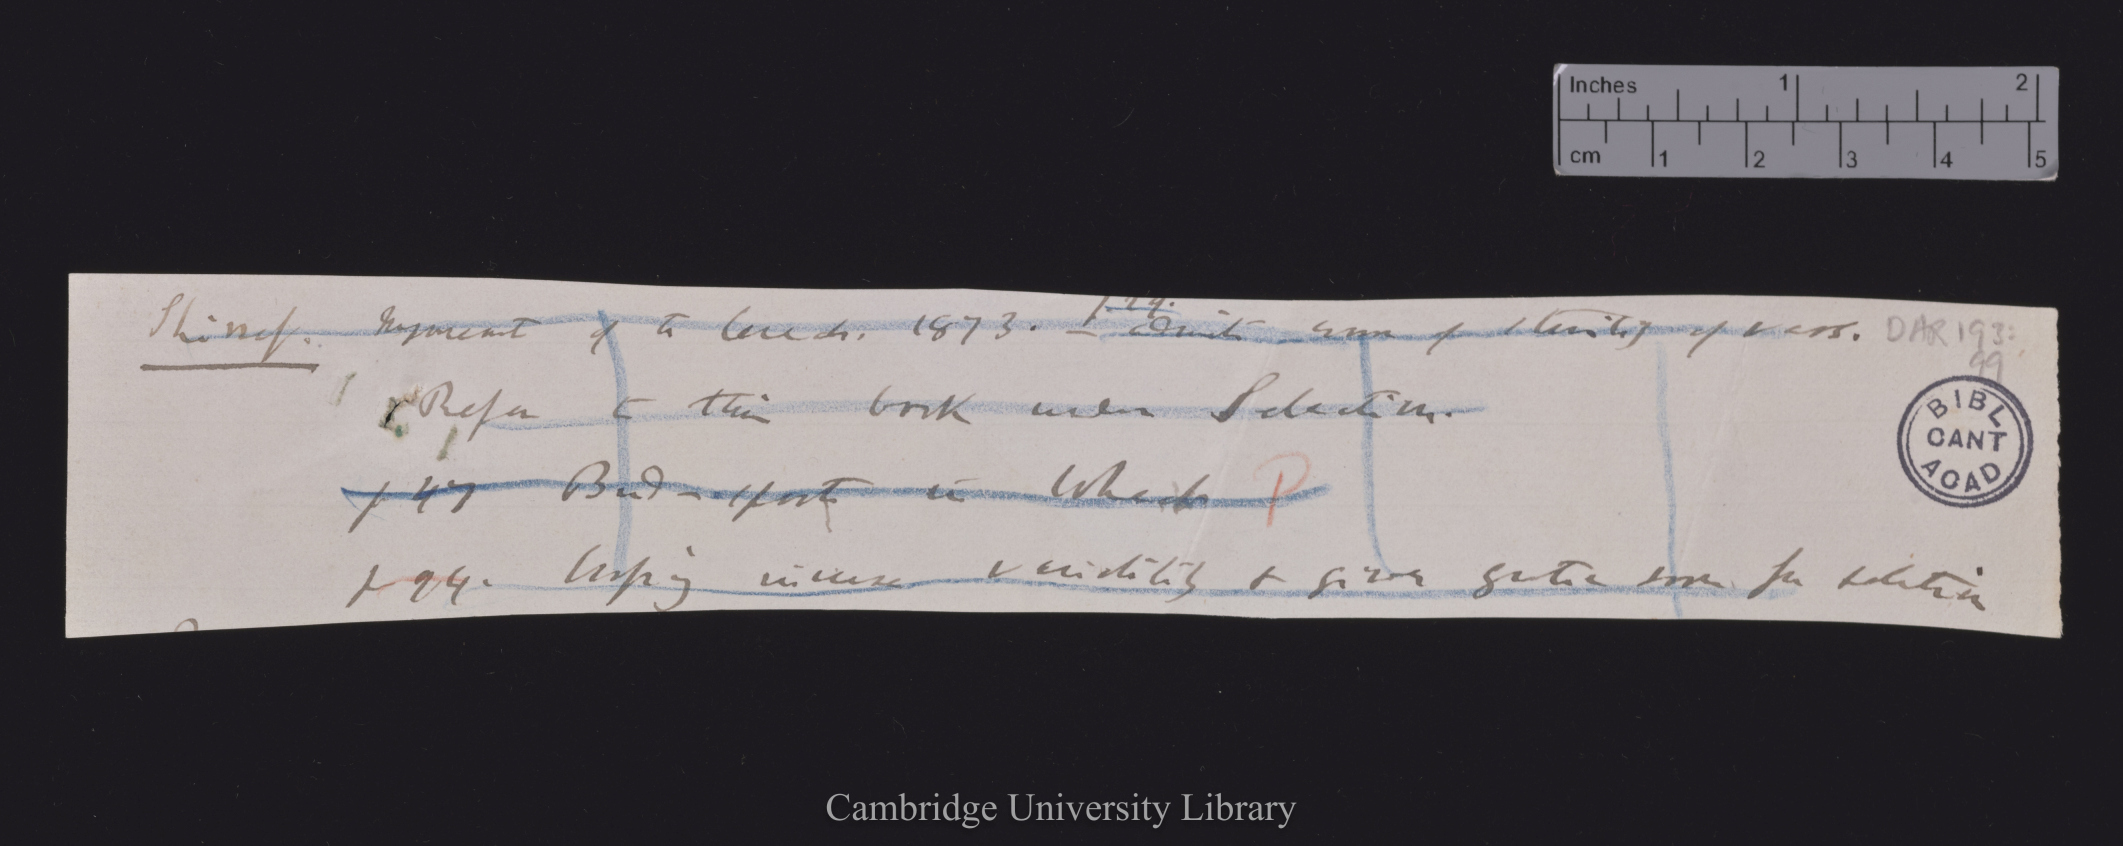 Inches 1 2
cm 1 2 3 4 5
p 24.
Shirreff. Improvement of the Cereals. 1873. — admits some of sterility of vars.
DAR 193:
99
Refer to this book under Selection.
BIBL
CANT
ACAD
p 47 Bud-sports in Wheat P
p 94. Crossing increases variability & gives greater room for selection
Cambridge University Library